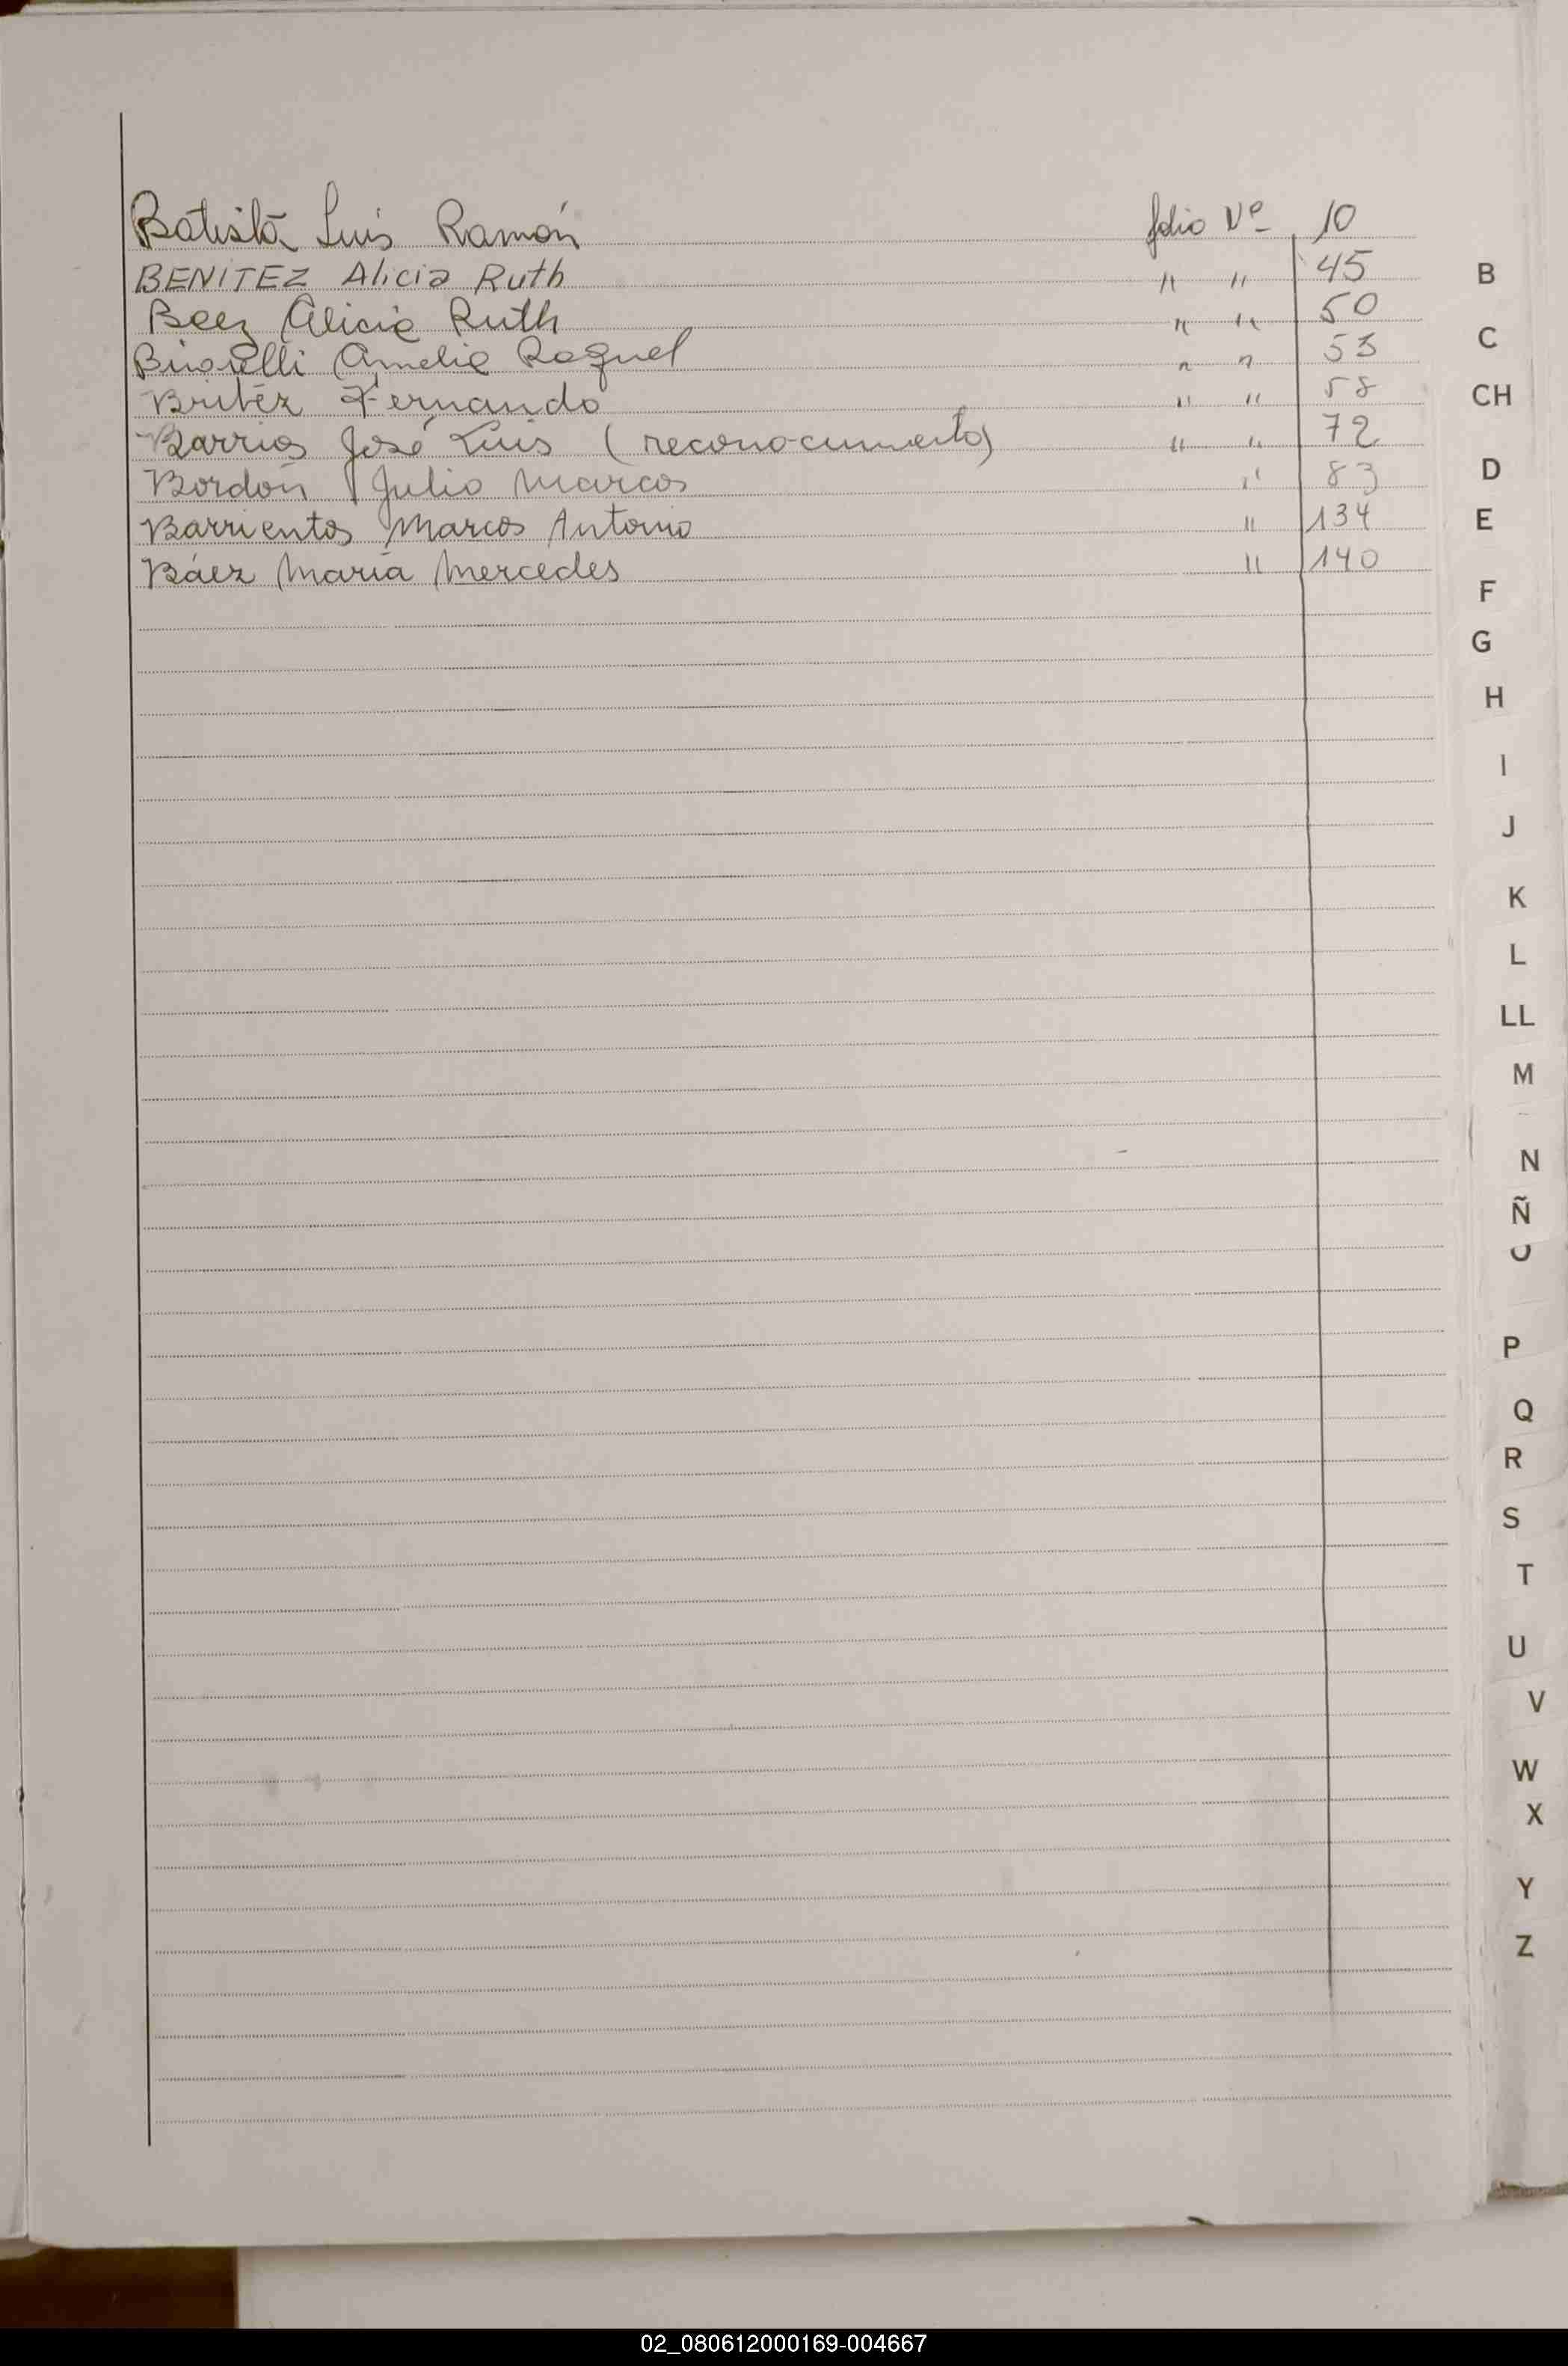 Batista Luis Ramón folio Nº 10
BENITEZ Alicia Ruth " " 45
Baez Alicia Ruth " " 50
Amelia Raquel " " 53
Britez Fernando " " 58
Barrios José Luis (reconocimiento) " " 72
Bordón Julio Marcos " 83
Barrientos Marcos Antonio " 134
Báez María Mercedes " 140
B
C
CH
D
E
F
G
H
I
J
K
L
LL
M
N
Ñ
O
P
Q
R
S
T
U
V
W
X
Y
Z
02_080612000169-004667